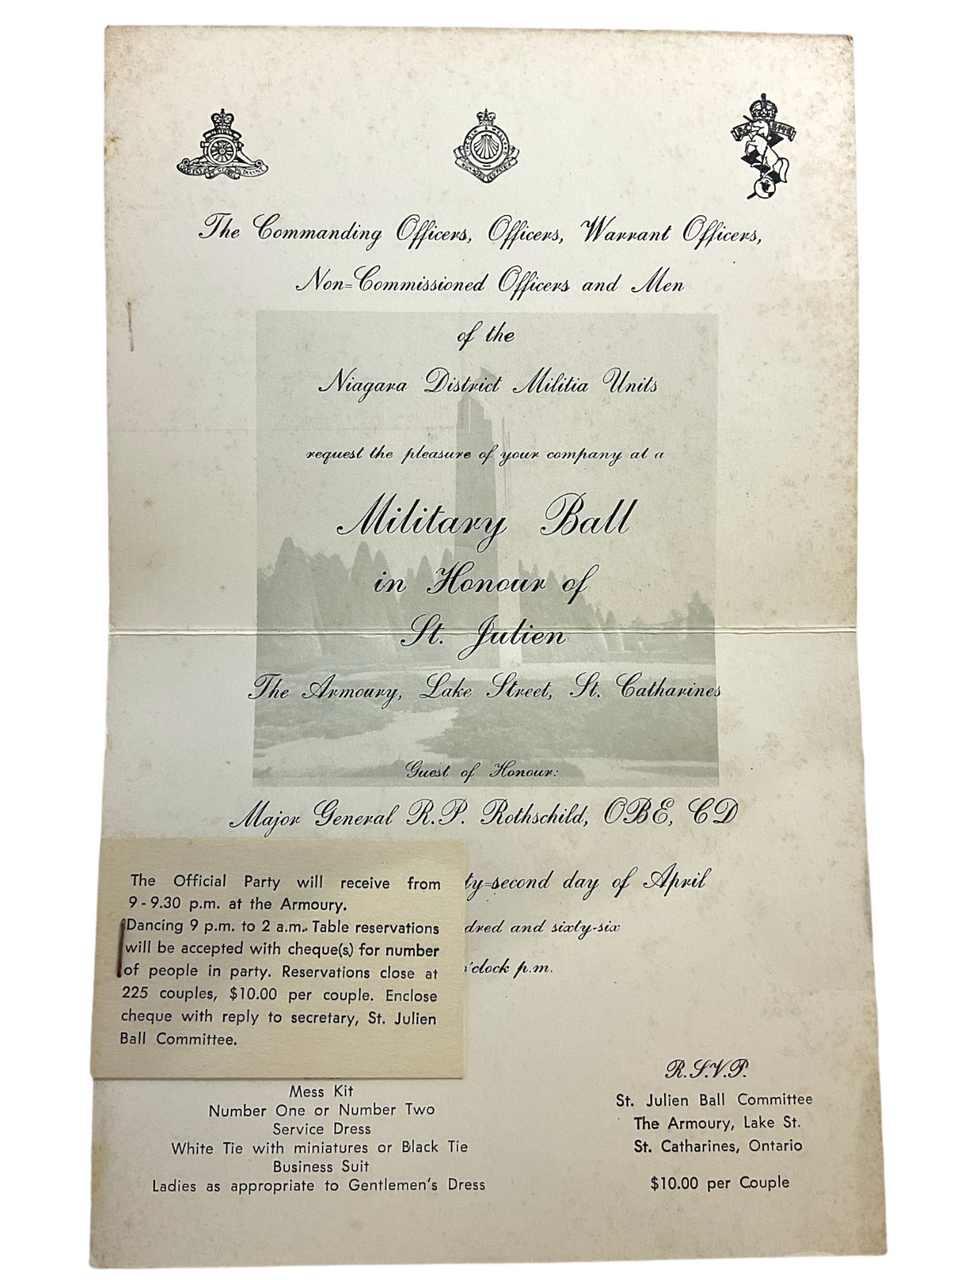 The Commanding Officers, Officers, Warrant Officers,
Non=Commissioned Officers and Men
of the
Niagara District Militia Units
request the pleasure of your company at a
Military Ball
in Honour of
St. Julien
The Armoury, Lake Street, St. Catharines
Guest of Honour:
Major General R.P. Rothschild, OBE, CD
ty=second day of April
dred and sixty-six
o'clock p.m.
The Official Party will receive from
9-9.30 p.m. at the Armoury.
Dancing 9 p.m. to 2 a.m. Table reservations
will be accepted with cheque(s) for number
of people in party. Reservations close at
225 couples, $10.00 per couple. Enclose
cheque with reply to secretary, St. Julien
Ball Committee.
Mess Kit
Number One or Number Two
Service Dress
White Tie with miniatures or Black Tie
Business Suit
Ladies as appropriate to Gentlemen's Dress
R.S.V.P.
St. Julien Ball Committee
The Armoury, Lake St.
St. Catharines, Ontario
$10.00 per Couple